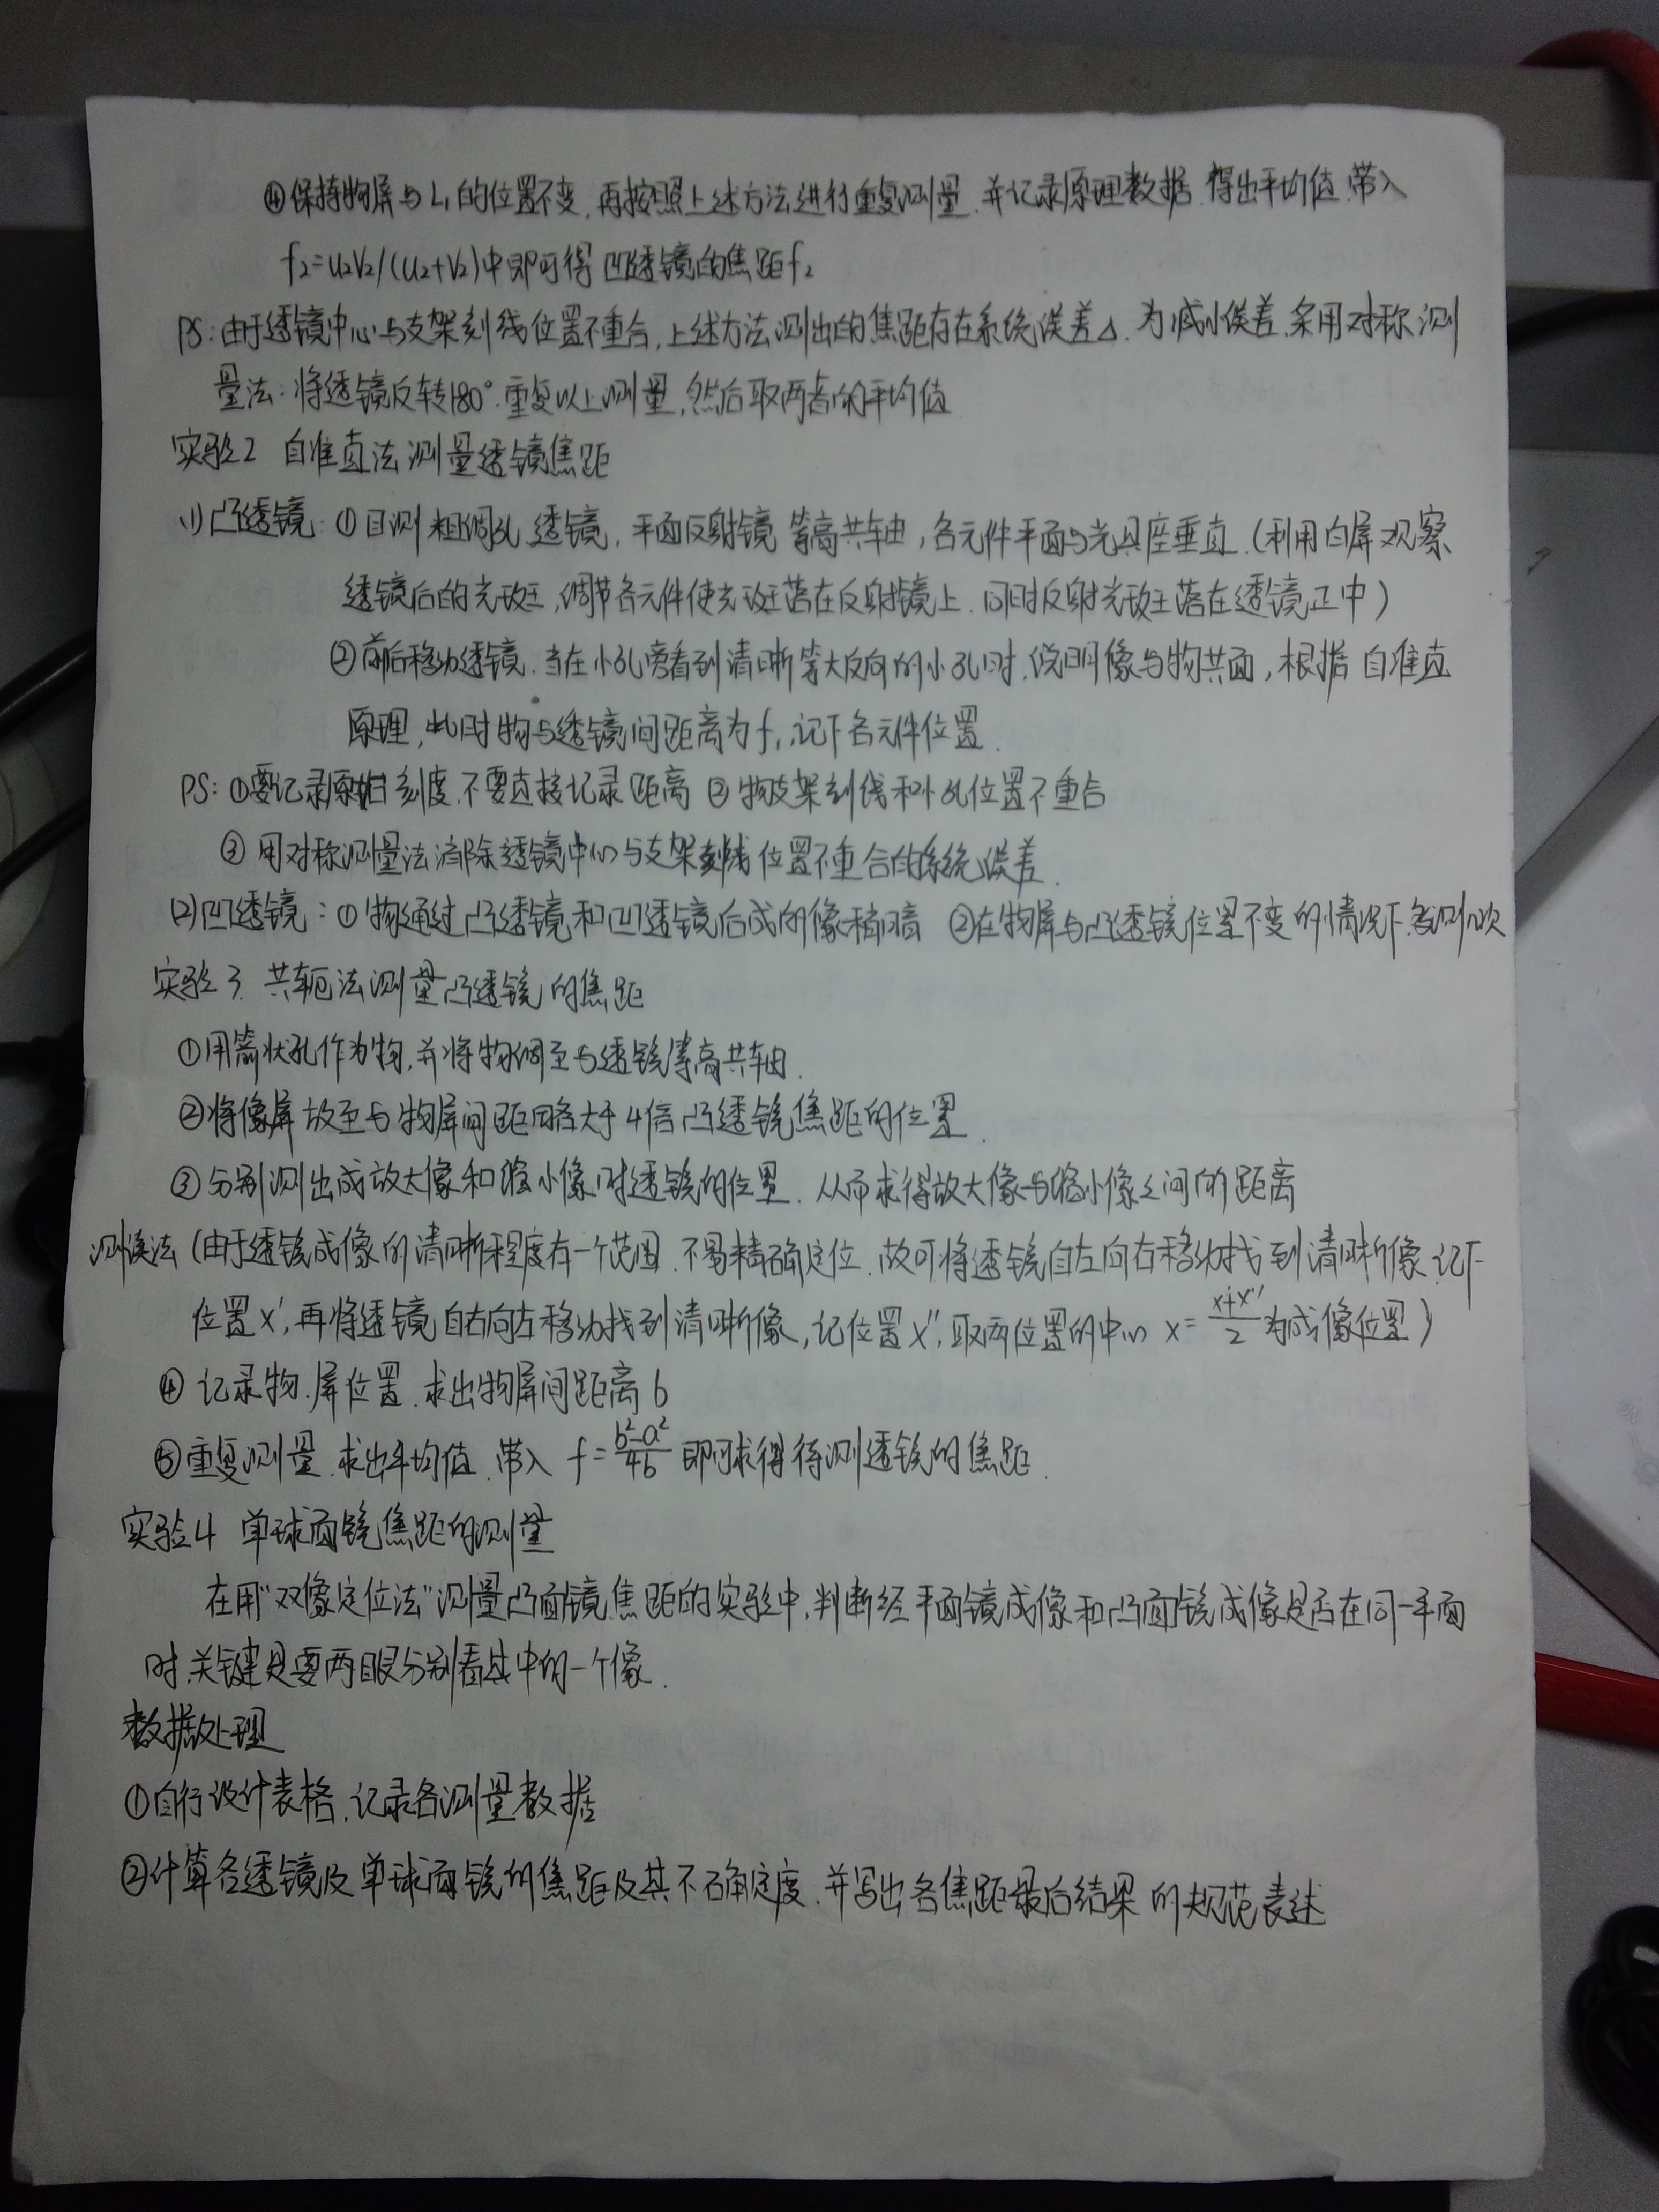 ④保持物屏与L₁的位置不变,再按照上述方法进行重复测量,并记录原理数据,得出平均值,带入
f₂=u₂v₂/(u₂+v₂)中即可得凹透镜的焦距f₂
PS:由于透镜中心与支架刻线位置不重合,上述方法测出的焦距存在系统误差△,为减小误差,采用对称测
量法:将透镜反转180°,重复以上测量,然后取两者的平均值
实验2 自准直法测量透镜焦距
(1)凸透镜:①目测粗调孔、透镜,平面反射镜等高共轴,各元件平面与光具座垂直.(利用白屏观察
透镜后的光斑,调节各元件使光斑落在反射镜上,同时反射光斑落在透镜正中)
②前后移动透镜,当在小孔旁看到清晰等大反向的小孔时,说明像与物共面,根据自准直
原理,此时物与透镜间距离为f,记下各元件位置.
PS:①要记录原始刻度,不要直接记录距离 ②物支架刻线和小孔位置不重合
③用对称测量法消除透镜中心与支架刻线位置不重合的系统误差.
(2)凹透镜:①物通过凸透镜和凹透镜后成的像稍暗 ②在物屏与凸透镜位置不变的情况下,多测几次
实验3.共轭法测量凸透镜的焦距
①用箭状孔作为物,并将物调至与透镜等高共轴.
②将像屏放至与物屏间距略大于4倍凸透镜焦距的位置.
③分别测出成放大像和缩小像时透镜的位置.从而求得放大像与缩小像之间的距离
测读法(由于透镜成像的清晰程度有一个范围,不易精确定位,故可将透镜自左向右移动找到清晰像,记下
位置x′,再将透镜自右向左移动找到清晰像,记位置x″,取两位置的中心 x=(x′+x″)/2 为成像位置)
④记录物、屏位置.求出物屏间距离b
⑤重复测量.求出平均值.带入 f=(b²-a²)/4b 即可求得待测透镜的焦距.
实验4 单球面镜焦距的测量
在用"双像定位法"测量凸面镜焦距的实验中,判断经平面镜成像和凸面镜成像是否在同一平面
时,关键是要两眼分别看其中的一个像.
数据处理
①自行设计表格,记录各测量数据
②计算各透镜及单球面镜的焦距及其不确定度,并写出各焦距最后结果的规范表述